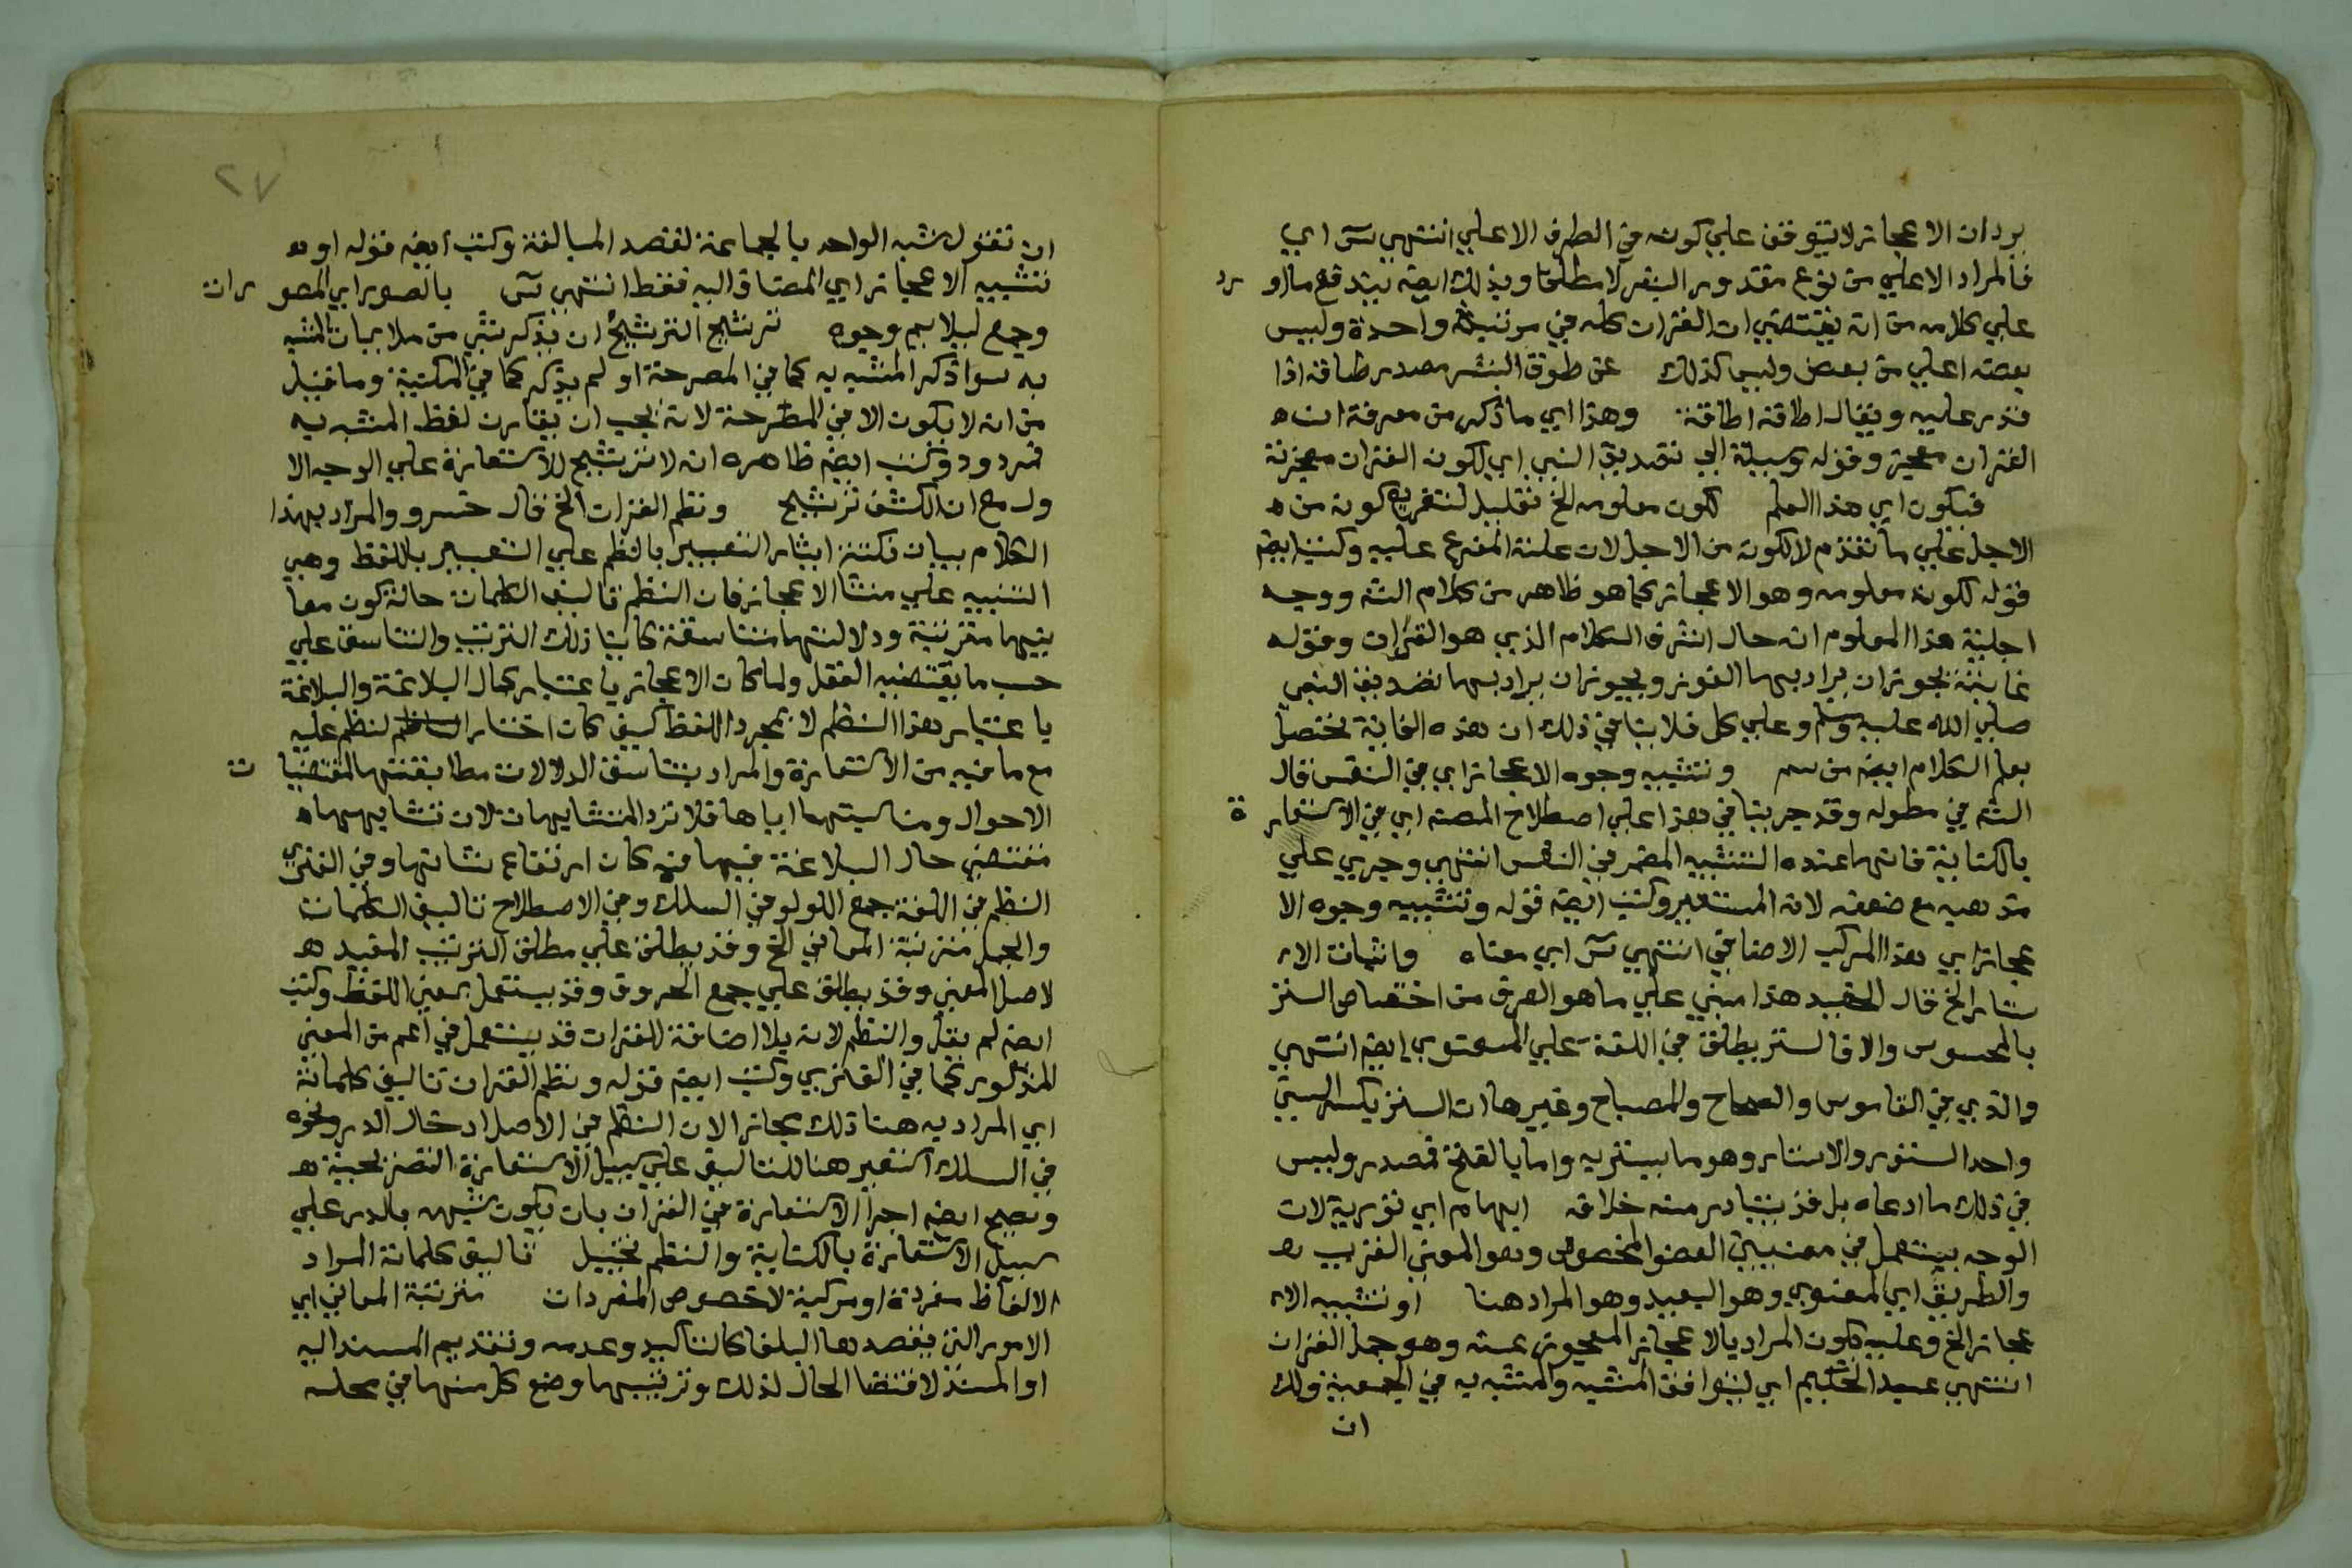 يرد ان الاعجاز لا يتوقف علي كونه في الطرف الاعلي انتهي سى اي
فالمراد الاعلي من نوع مقدور البشر لا مطلقا وبذلك ايضه يندفع مااو رد
علي كلامه من انه يقتضي ان القران كله في مرتبة واحدة وليس
بعضه اعلي من بعض وليس كذلك عن طوق البشر مصدر طاقه اذا
قدر عليه ويقال اطاقه اطاقة وهذا اي ماذكر من معرفة ان ه
القران معجز وقوله وسيلة الي تصديق النبي اي لكون القران معجزته
فيكون اي هذا العلم لكون معلومه الخ تعليل لتفريع كونه من ه
الاجل علي ما تقدم لا لكونه من الاجل لان علته المفرع عليه وكتب ايضه
قوله لكون معلومه وهو الاعجاز كما هو ظاهر من كلام الشه ووجه
اجلية هذا المعلوم انه حال اشرف الكلام الذي هو القران وقوله
غايته يجوز ان يراد بها الفوز ويجوز ان يراد بها تصديق النبي
صلي الله عليه وسلم وعلي كل فلا ينافي ذلك ان هذه الغاية تحتصل
بعلم الكلام ايضه من سم وتشبيه وجوه الاعجاز اي في النفس قال
الشه في مطوله وقد جرينا في هذا علي اصطلاح المصه اي في الاستعار ة
بالكناية فانها عنده التشبيه المضمر في النفس انتهي وجري علي
مذهبه مع ضعفه لانه المستعير وكتب ايضه قوله وتشبيه وجوه الا
عجاز اي هذا المركب الاضافي انتهي سى اي معناه واثبات الا
ستار الخ قال الحفيد هذا مبني علي ما هو العرف من اختصاص الستر
بالمحسوس والا فالستر يطلق في اللغة علي المعنوي ايضه انتهي
والذي في القاموس والصحاح والمصباح وغيرها ان الستر بكسر السين
واحد الستور والاستار وهو ما يستتر به واما بالفتح فمصدر وليس
في ذلك ما ادعاه بل قد يتبادر منه خلافه ايهام اي تورية لان
الوجه يستعمل في معنيين العضو المخصوص وهو المعني القريب ه
والطريق اي المعنوي وهو البعيد وهو المراد هنا او تشبيه الا
عجاز الخ وعليه يكون المراد بالاعجاز المعجوز عنه وهو جمل القران
انتهي عبد الحكيم اي ليوافق المشبه والمشبه به في الجمعية ولك
ان
٢٧
ان تقول شبه الواحد بالجماعة لقصد المبالغة وكتب ايضه قوله او ه
تشبيه الاعجاز اي المضاف اليه فقط انتهي سى بالصور اي المصو ران
وجمع ليلايم وجوه ترشيح الترشيح ان يذكر شي من ملايمات المشبه
به سوا ذكر المشبه به كما في المصرحة او لم يذكر كما في المكنية وما قيل
من انه لا يكون الا في المصرحة لانه يجب ان يقارن لفظ المشبه به
فمردود وكتب ايضه ظاهره انه لا ترشيح للاستعارة علي الوجه الا
ول مع ان الكشف ترشيح ونظم القران الخ قال خسرو والمراد بهذا
الكلام بيان نكتة ايثار التعبير بالنظم علي التعبير باللفظ وهي
التنبيه علي منشا الاعجاز فان النظم تاليف الكلمات حالة كون معا
نيها مترتبة ودلالتها متناسقة كاينا ذلك الترتب والتناسق علي
حسب ما يقتضيه العقل ولما كان الاعجاز باعتبار كمال البلاغة والبلاغة
باعتبار هذا النظم لا بمجرد اللفظ كيف كان اختار لنظم عليه
مع ما فيه من الاستعارة والمراد بتناسق الدلالات مطابقتها لمقتضيا ت
الاحوال ومناسبتها اياها فلا ترد المتشابهات لان تشابهها ه
مقتضي حال البلاغة فيها فيه كان ارتفاع شانها وفي الفنري
النظم في اللغة جمع اللولو في السلك وفي الاصطلاح تاليف الكلمات
والجمل مترتبة المعاني الخ وقد يطلق علي مطلق الترتيب المفيد ه
لاصل المعني وقد يطلق علي جمع الحروف وقد يستعمل بمعني اللفظ وكتب
ايضه لم يقل والنظم لانه بلا اضافة للقران قد يستعمل في اعم من المعني
المذكور كما في الفنري وكتب ايضه قوله ونظم القران تاليف كلماته
اي المراد به هنا ذلك مجازا لان النظم في الاصل ادخال الدر ونحوه
في السلك استعير هنا للتاليف علي سبيل الاستعارة التصريحية ه
ويصح ايضه اجرا الاستعارة في القران بان يكون شبهه بالدر علي
سبيل الاستعارة بالكناية والنظم تخييل تاليف كلماته المراد
الالفاظ مفردة او مركبة لا خصوص المفردات مترتبة المعاني اي
الامور التي يقصدها البلغا كالتاكيد وعدمه وتقديم المسند اليه
او المسند لاقتضا الحال لذلك وترتيبها وضع كل منها في محله